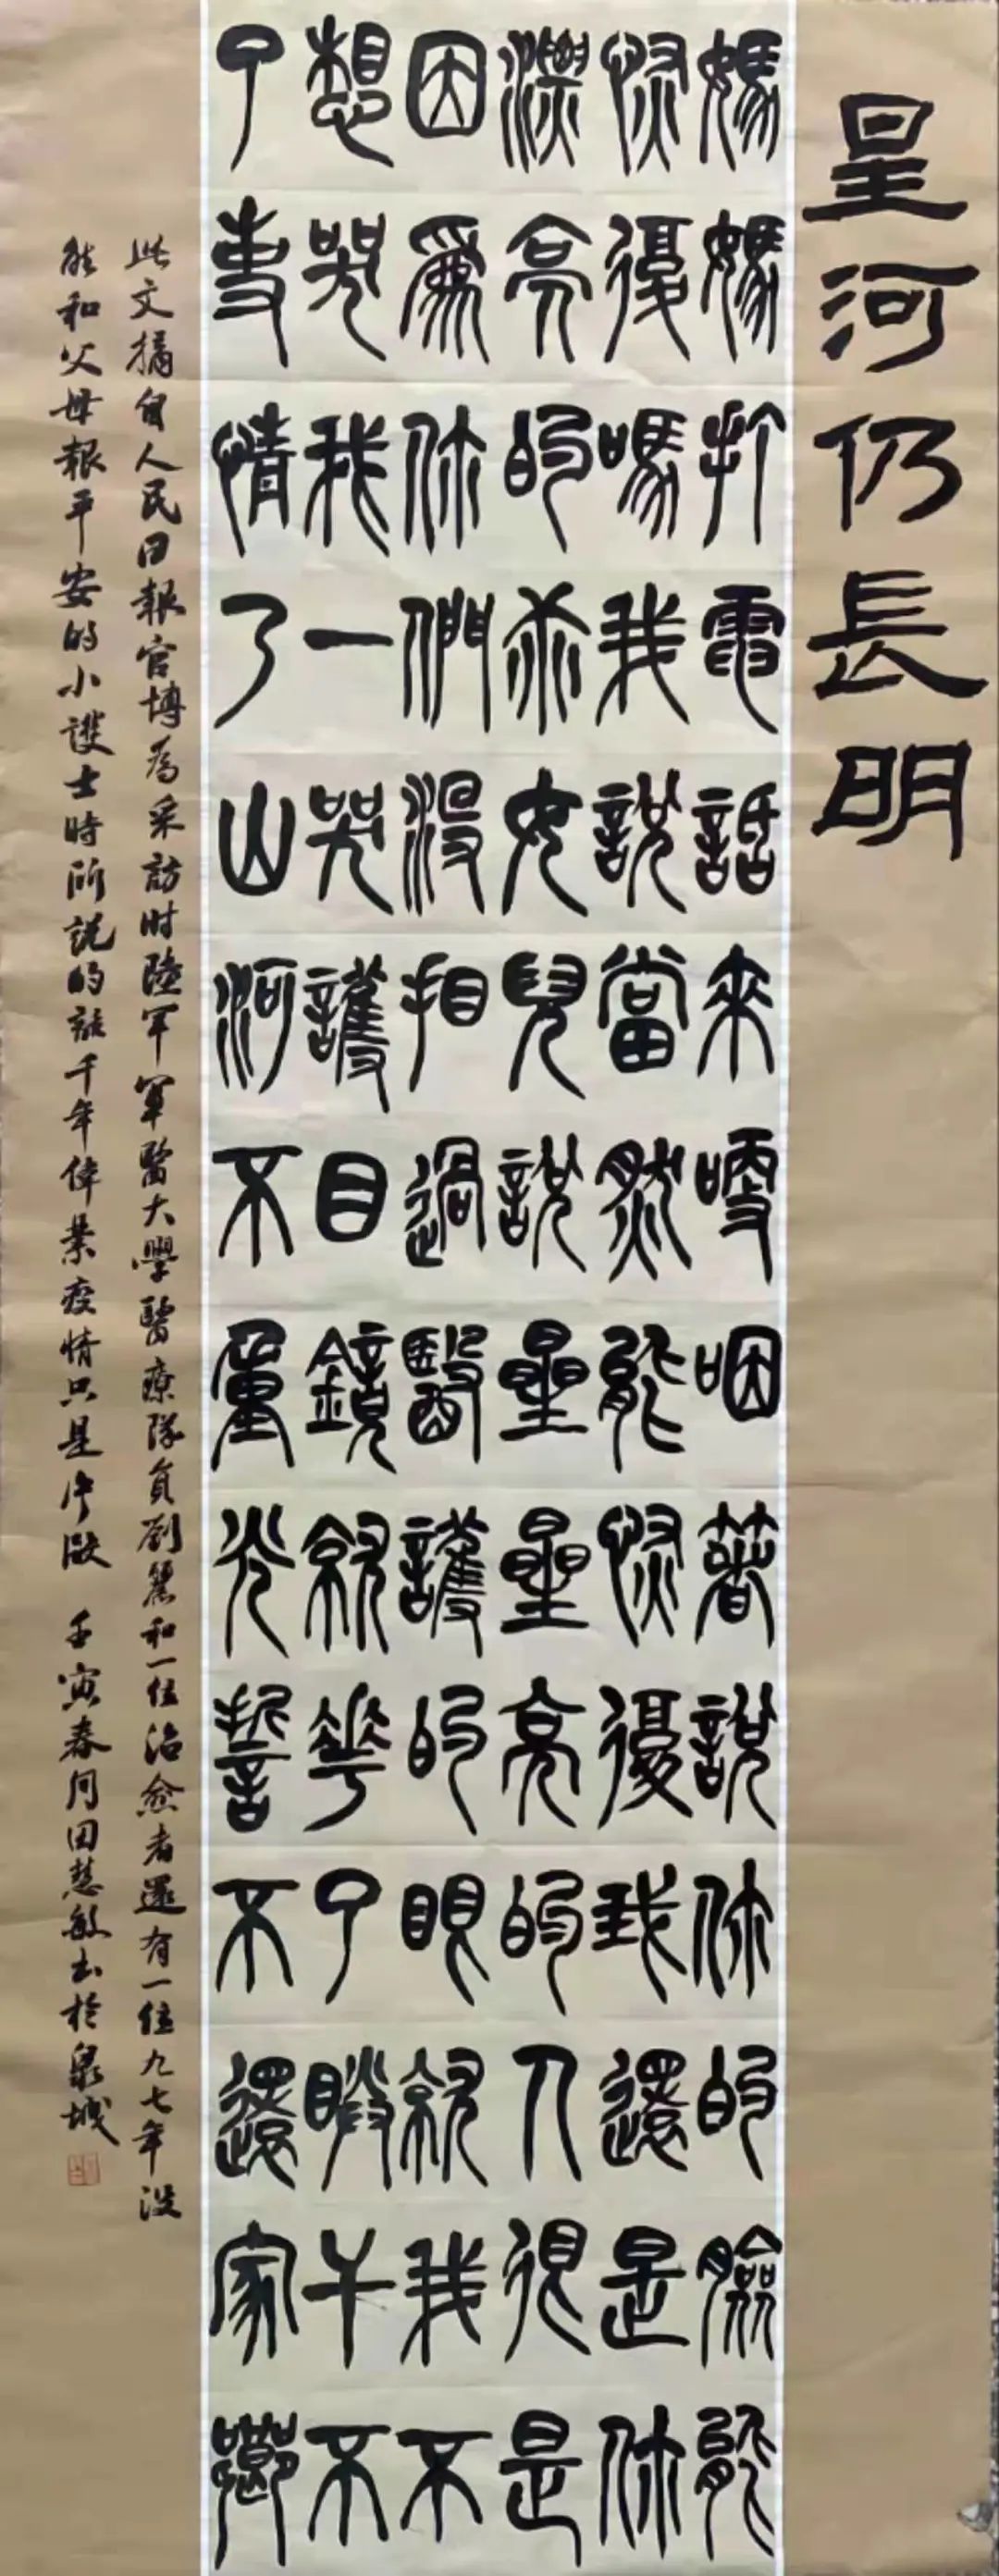 星河仍長明
媽媽打電話來哽咽著說你的臉能
恢復嗎我說當然能恢復我還是你
漂亮的乖女兒說星星亮的人很是
因為你們沒相過醫護的眼就我不
想哭我一哭護目鏡就花了干不
了事情了山河不重光誓不還家鄉
此文摘自人民日報官博為采訪时陸軍軍醫大學醫療隊員劉麗和一位治愈者還有一位九七年没
能和父母報平安的小護士時所說的話千年偉業疫情只是片段 壬寅春月田慧敏书於泉城